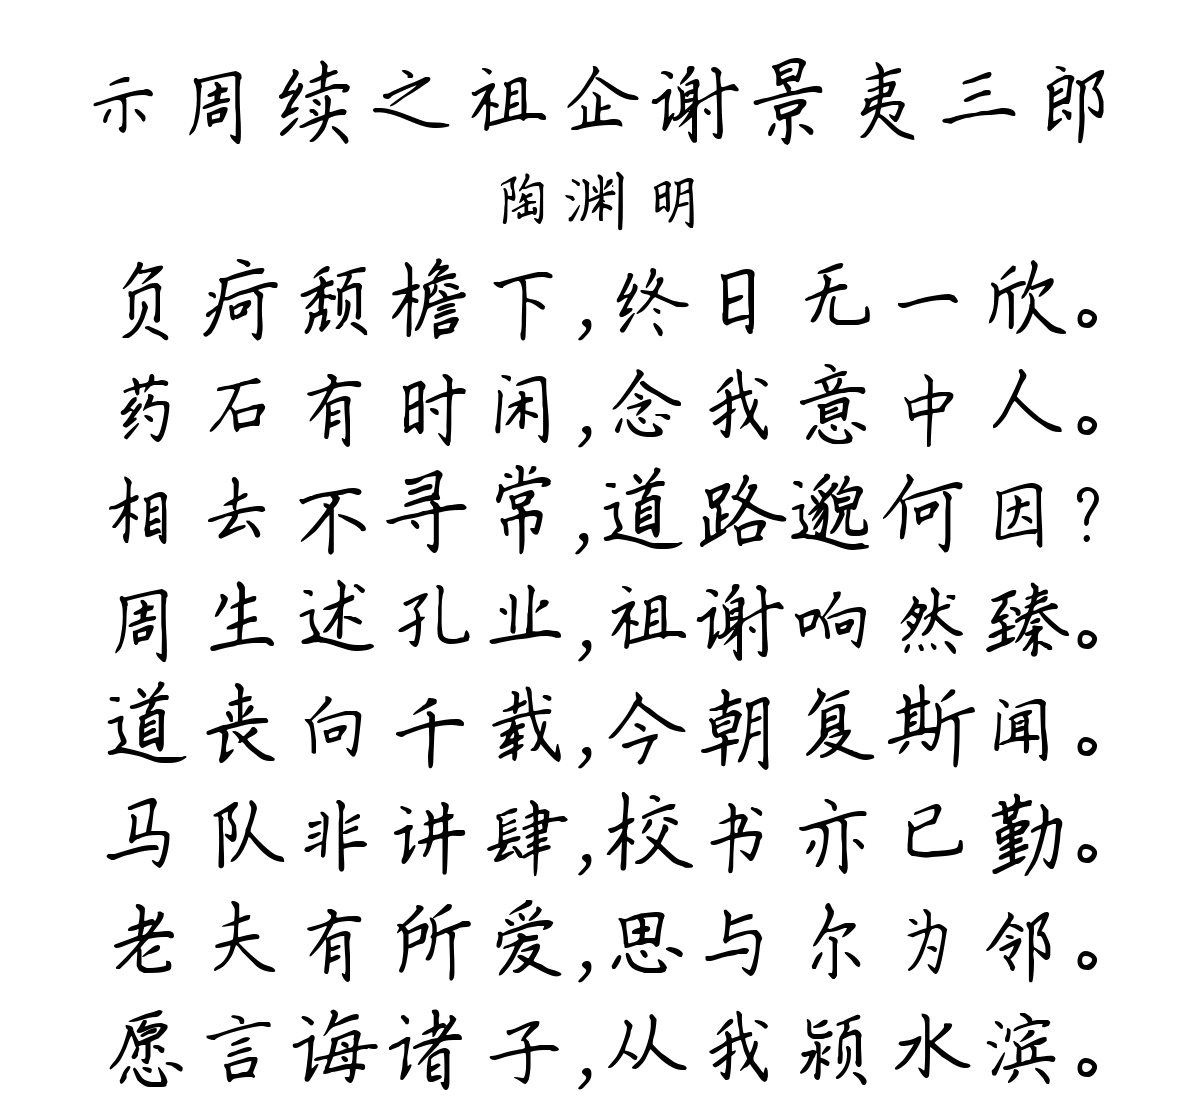 示周续之祖企谢景夷三郎
陶渊明
负疴颓檐下,终日无一欣。
药石有时闲,念我意中人。
相去不寻常,道路邈何因?
周生述孔业,祖谢响然臻。
道丧向千载,今朝复斯闻。
马队非讲肆,校书亦已勤。
老夫有所爱,思与尔为邻。
愿言诲诸子,从我颍水滨。